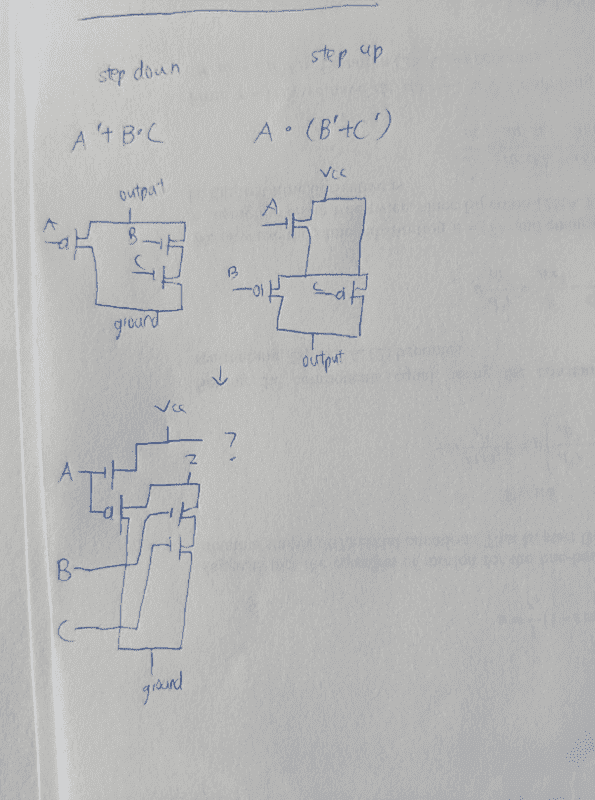 step down
step up
A'+B·C
A·(B'+C')
output
Vcc
A
B
C
ground
A
B
C
output
Vcc
?
A
z
B
C
ground